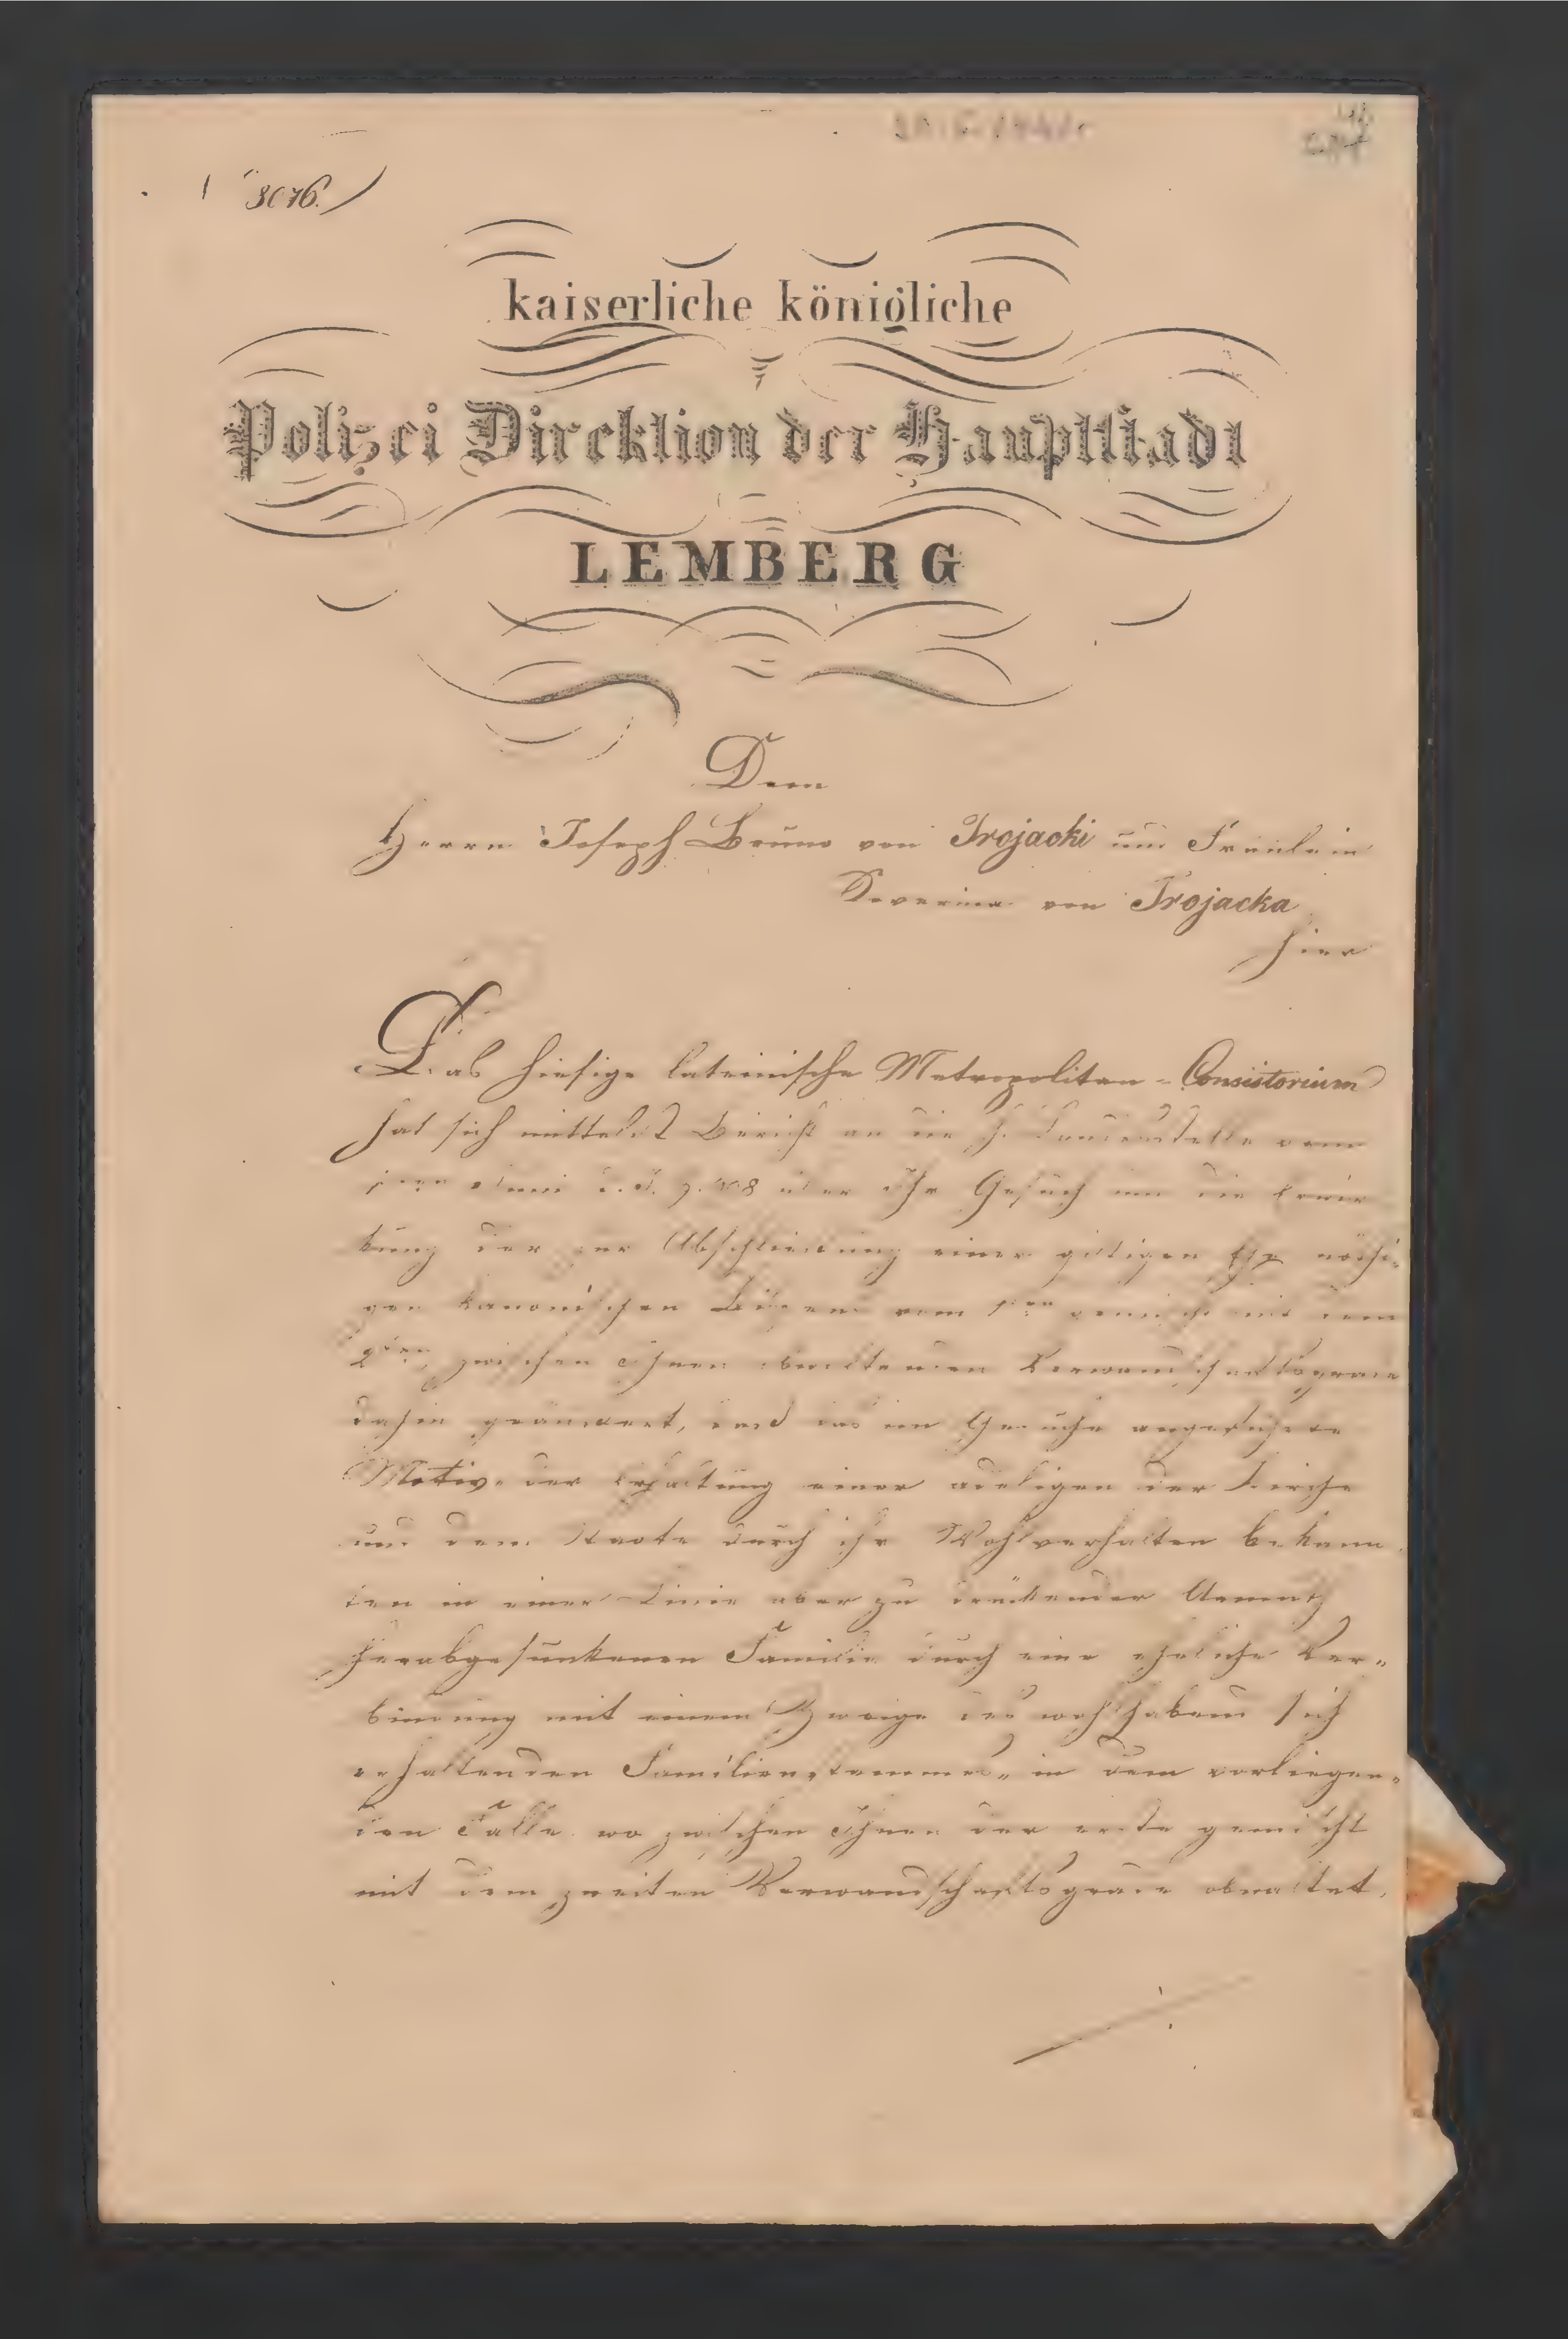 3076.
kaiserliche königliche
Polizei Direktion der Hauptstadt
LEMBERG
Dem
Herrn Joseph Bruno von Trojacki und Fräulein
Severina von Trojacka
hier
Das hiesige lateinische Metropolitan-Consistorium
hat sich mittelst Bericht an die h. Landesstelle vom
über Ihr Gesuch um die Erwir
kung der zur Abschliessung einer giltigen Ehe nöthi-
gen kanonischen vom 1ten gemischt mit dem
2ten zwischen Ihnen obwaltenden Verwandschaftsgrade
dahin geäussert, dass das im Gesuche angeführte
Motiv der Erhaltung einer adeligen der Kirche
und dem Staate durch ihr Wohlverhalten bekann
ten in einer Linie aber zu drückender Armuth
herabgesunkenen Familie durch eine eheliche Ver-
bindung mit einem Zweige des wohlhabend sich
erhaltenden Familienstammes, in dem vorliegen-
den Falle wo zwischen Ihnen der erste gemischt
mit dem zweiten Verwandschaftsgrade obwaltet,